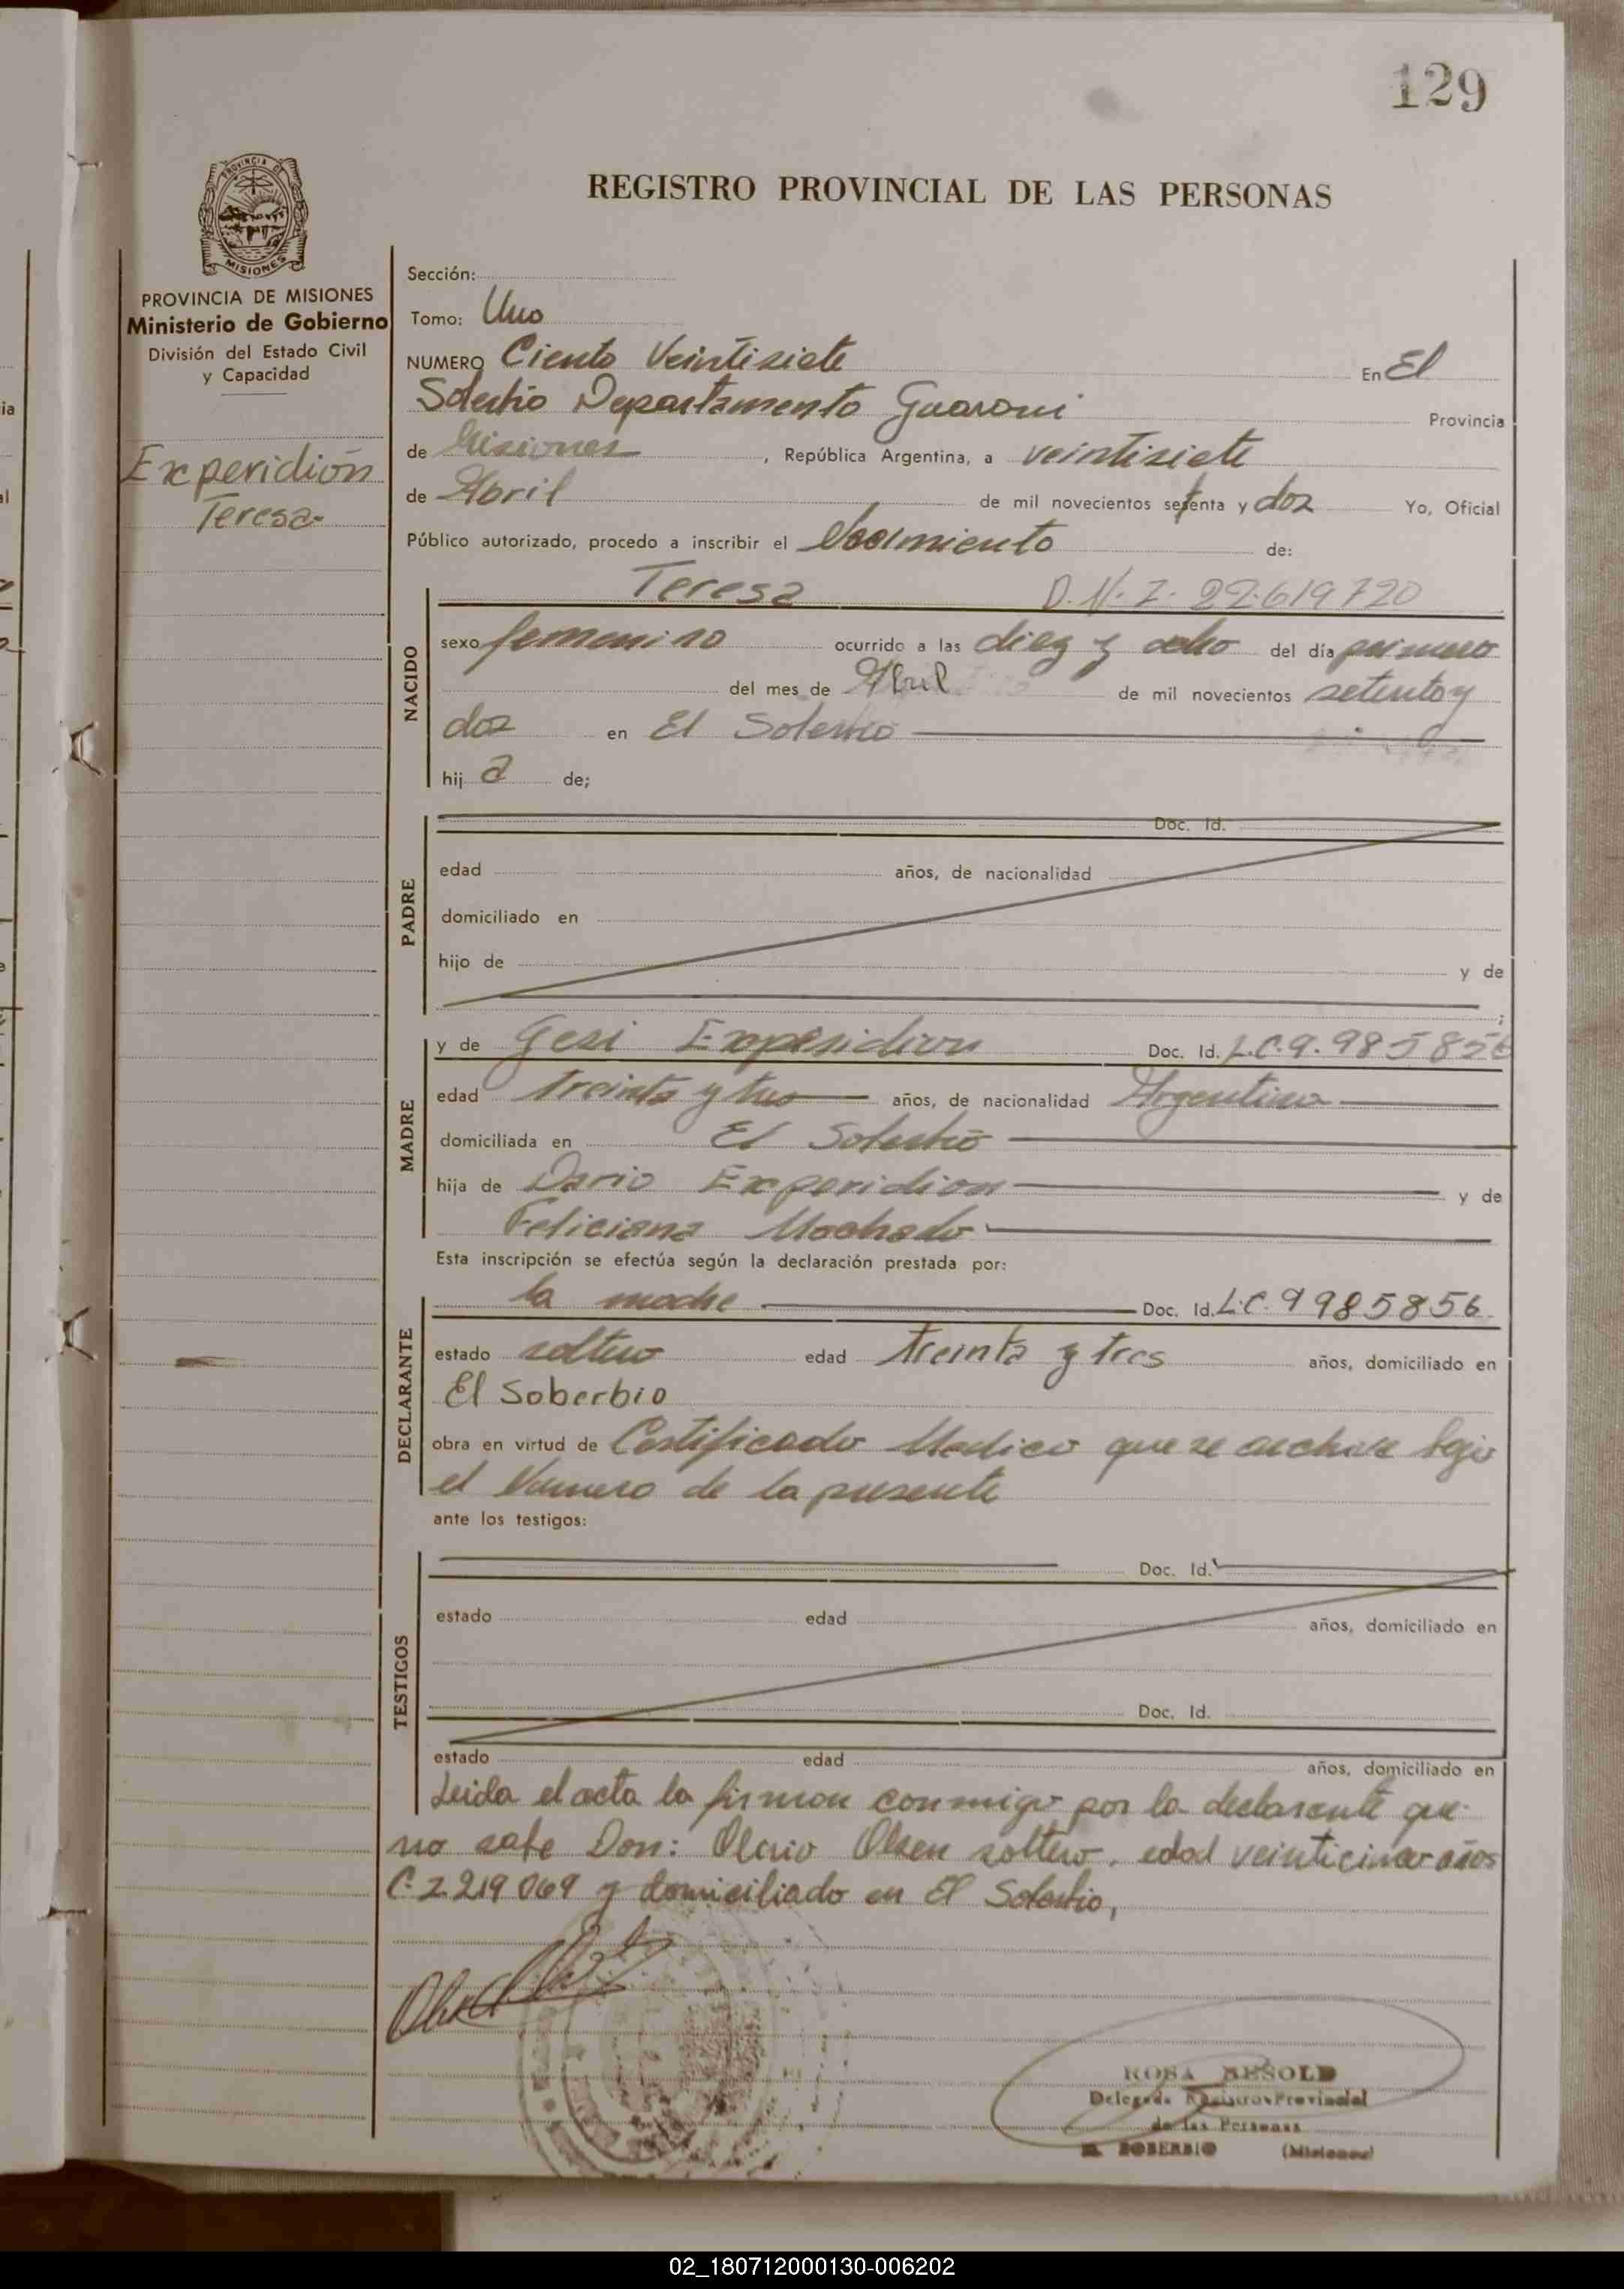 129
PROVINCIA DE MISIONES
REGISTRO PROVINCIAL DE LAS PERSONAS
PROVINCIA DE MISIONES
Ministerio de Gobierno
División del Estado Civil
y Capacidad
Experidión
Teresa-
Sección:
Tomo: Uno
NUMERO Ciento Veintisiete En El
Soberbio Departamento Guarani Provincia
de Misiones, República Argentina, a veintisiete
de Abril de mil novecientos setenta y dos Yo, Oficial
Público autorizado, procedo a inscribir el Nacimiento de:
NACIDO
Teresa D.N.I. 22.619720
sexo femenino ocurrido a las diez y ocho del día primero
del mes de Abril de mil novecientos setenta y
dos en El Soberbio
hij a de;
PADRE
Doc. Id.
edad años, de nacionalidad
domiciliado en
hijo de y de
;
MADRE
y de Gesi Experidion Doc. Id. L.C.9.985856
edad treinta y tres años, de nacionalidad Argentina
domiciliada en El Soberbio
hija de Dario Experidion y de
Feliciana Machado
Esta inscripción se efectúa según la declaración prestada por:
DECLARANTE
la madre Doc. Id. L.C. 9985856
estado soltera edad treinta y tres años, domiciliado en
El Soberbio
obra en virtud de Certificado Medico que se archiva bajo
el Numero de la presente
ante los testigos:
TESTIGOS
Doc. Id.
estado edad años, domiciliado en
Doc. Id.
estado edad años, domiciliado en
Leida el acta la firman conmigo por la declarante que
no sabe Don: Olavio Olsen soltero, edad veinticinco años
C.I 219069 y domiciliado en El Soberbio,
ROSA BESOLD
Delegada Registro Provincial
de las Personas
EL SOBERBIO (Misiones)
02_180712000130-006202